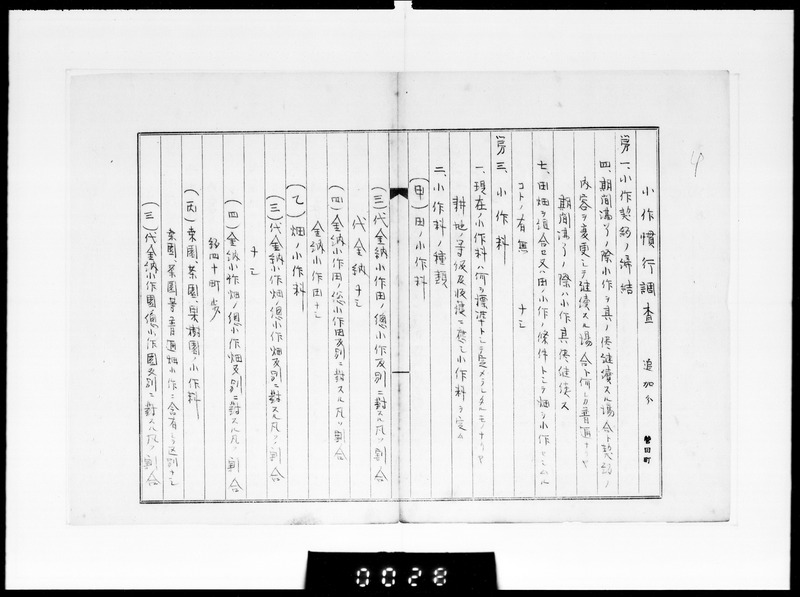 小作慣行調査 追加分 豊田町
第一、小作契約ノ締結
四、期間満了ノ際小作ヲ其ノ侭継續スル場合ト契約ノ
内容ヲ変更シテ継續スル場合ト何レカ普通ナリヤ
期間満了ノ際ハ小作其侭継続ス
七、田畑ヲ混合セ又ハ田ノ小作ノ條件トシテ畑ヲ小作セシムル
コトノ有無 ナシ
第三、小作料
一、現在ノ小作料ハ何ヲ標準トシテ定メラレタルモノナリヤ
耕地ノ等級及収穫ニ應シ小作料ヲ定ム
二、小作料ノ種類
(甲)田ノ小作料
(三)代金納小作田ノ總小作反別ニ對スル凡ソ割合
代金納ナシ
(四)金納小作田ノ總小作田反別ニ對スル凡ソ割合
金納小作田ナシ
(乙)畑ノ小作料
(三)代金納小作畑ノ總小作畑反別ニ對スル凡ソ割合
ナシ
(四)金納小作畑ノ總小作畑反別ニ對スル凡ソ割合
四十町歩
(丙)桑園、茶園、果樹園ノ小作料
桑園、茶園等普通畑小作ニ含有シ区別ナシ
(三)代金納小作園ノ總小作園反別ニ對スル凡ソ割合
0028